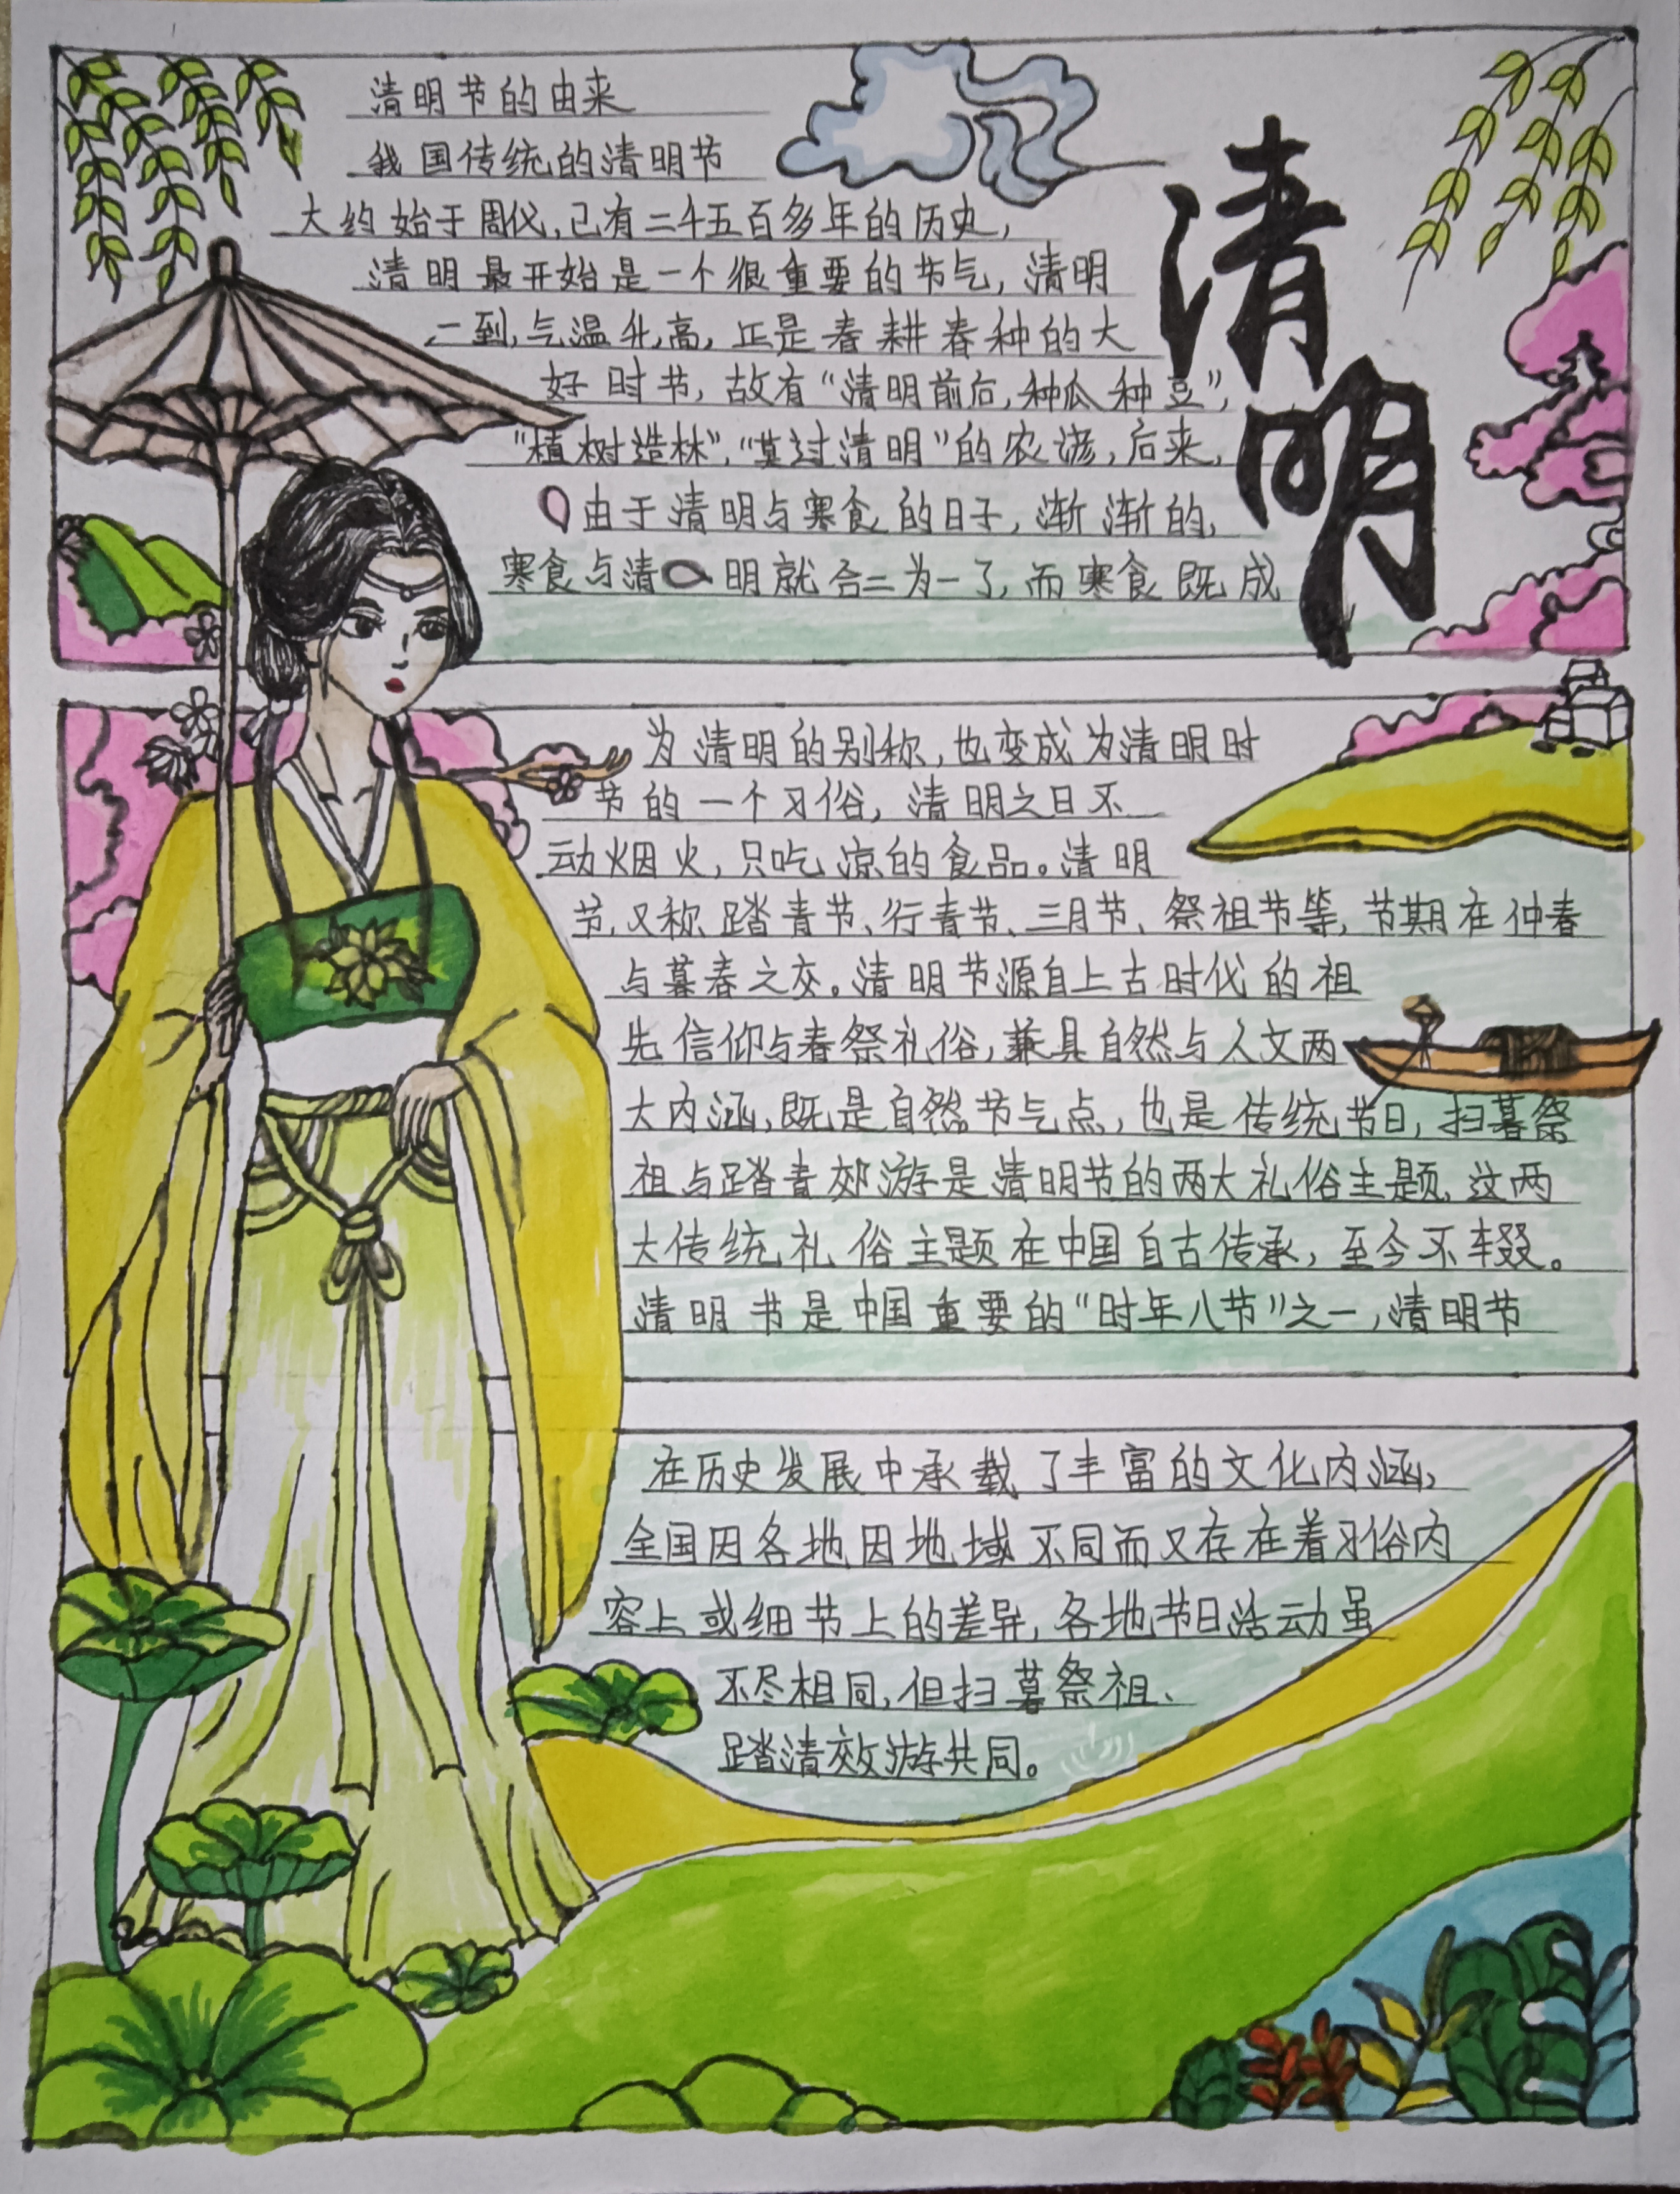 清明节的由来
我国传统的清明节
大约始于周代,已有二千五百多年的历史,
清明最开始是一个很重要的节气,清明
一到,气温升高,正是春耕春种的大
好时节,故有“清明前后,种瓜种豆”,
“植树造林”,“莫过清明”的农谚,后来,
由于清明与寒食的日子,渐渐的,
寒食与清明就合二为一了,而寒食既成
清明
为清明的别称,也变成为清明时
节的一个习俗,清明之日不
动烟火,只吃凉的食品。清明
节,又称踏青节、行青节、三月节、祭祖节等,节期在仲春
与暮春之交。清明节源自上古时代的祖
先信仰与春祭礼俗,兼具自然与人文两
大内涵,既是自然节气点,也是传统节日,扫暮祭
祖与踏青郊游是清明节的两大礼俗主题,这两
大传统礼俗主题在中国自古传承,至今不辍。
清明书是中国重要的“时年八节”之一,清明节
在历史发展中承载了丰富的文化内涵,
全国因各地因地域不同而又存在着习俗内
容上或细节上的差异,各地节日活动虽
不尽相同,但扫暮祭祖、
踏清效游共同。